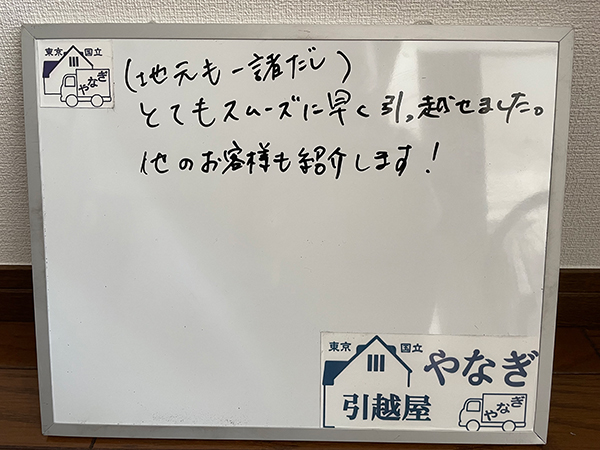 東京 国立
やなぎ
(地元も一諸だし)
とてもスムーズに早く引っ越せました。
他のお客様も紹介します!
東京 国立
やなぎ
引越屋
やなぎ